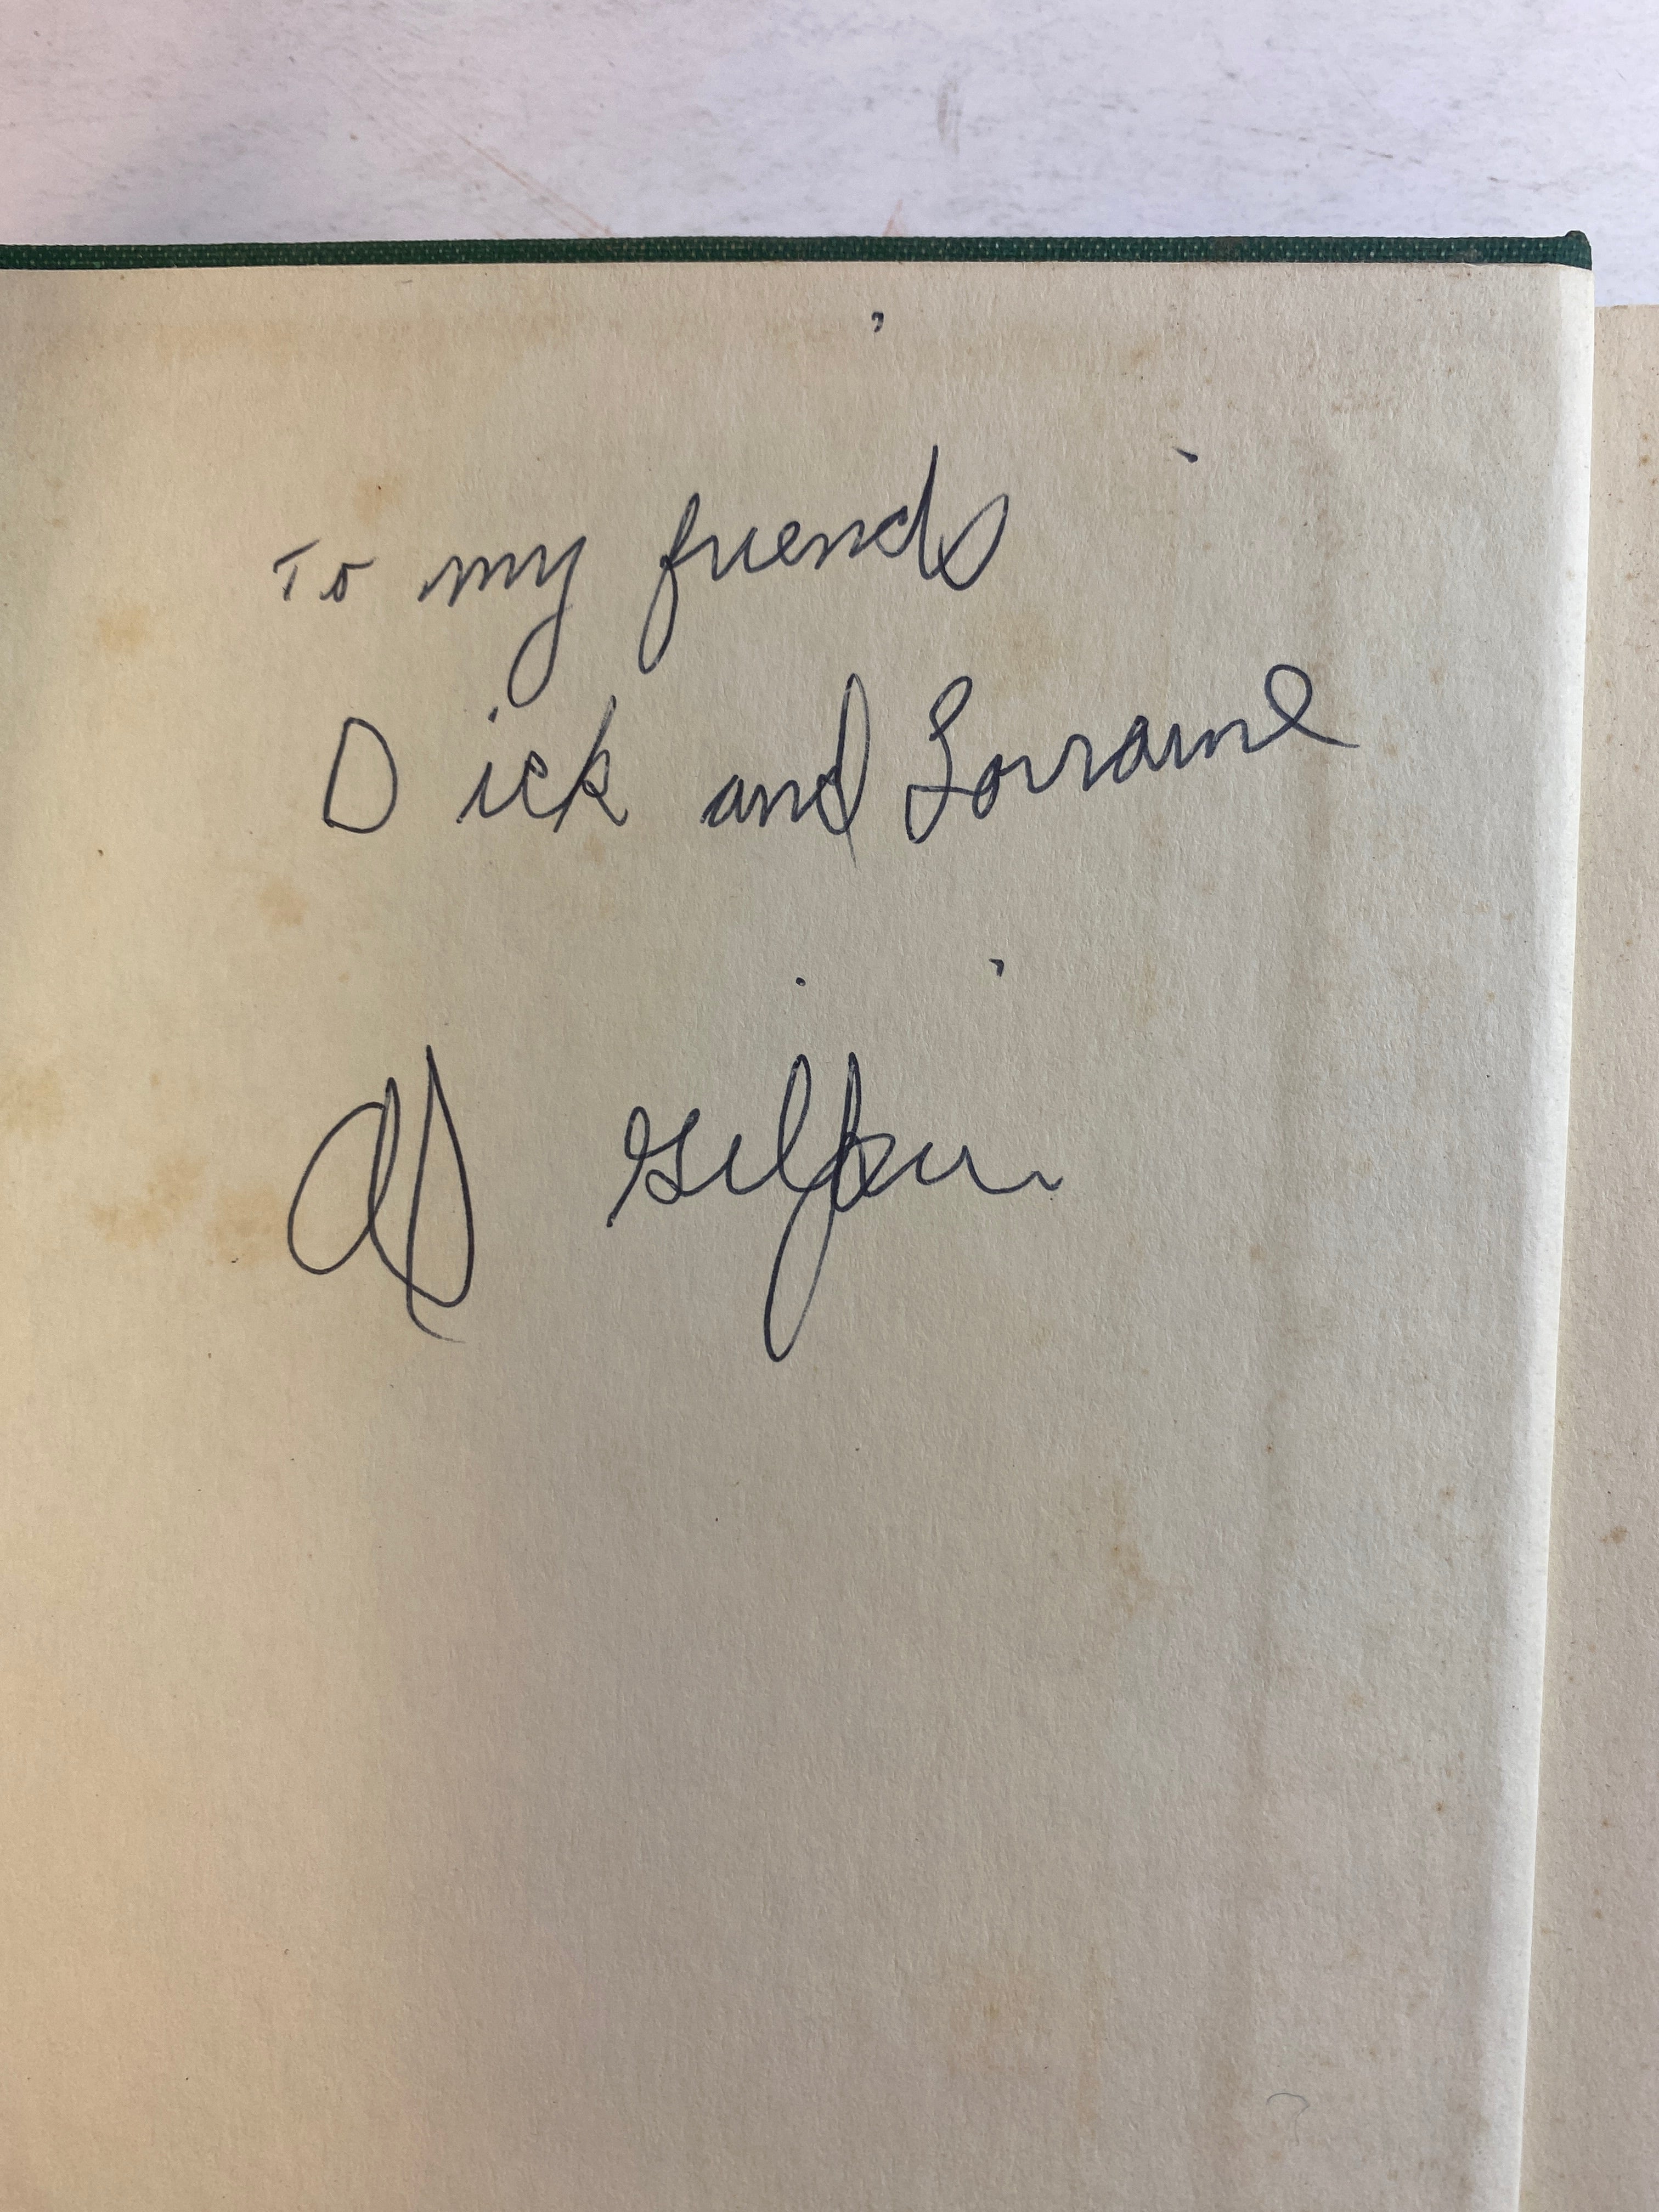 To my friends
Dick and Lorraine
Al Gilpin